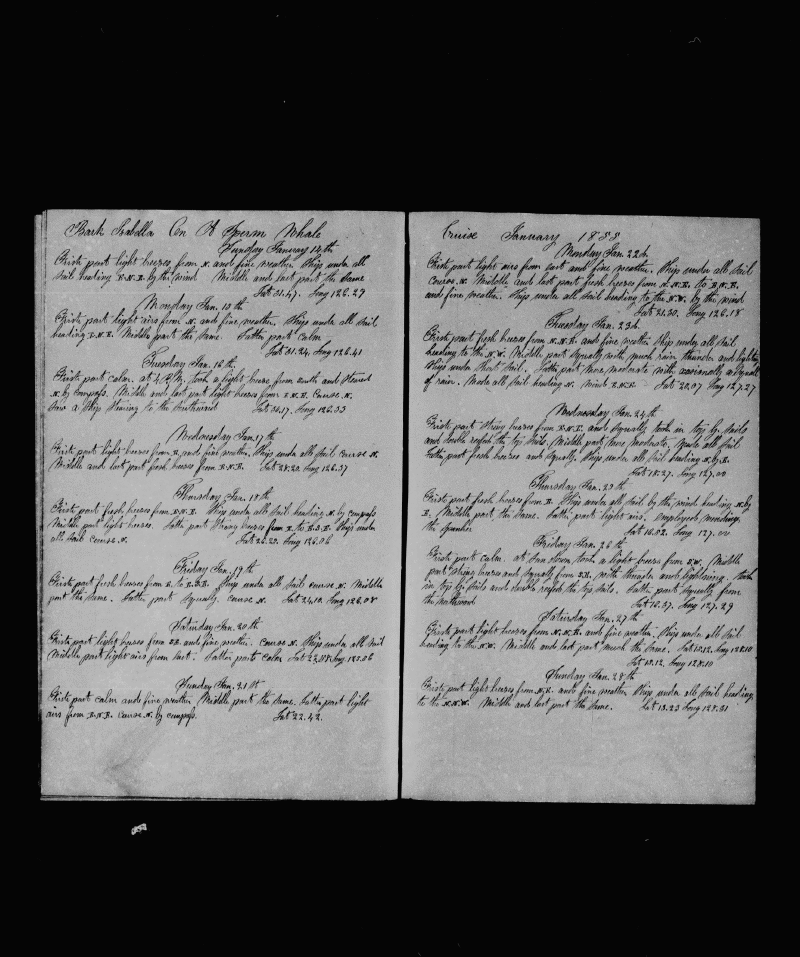 Bark Isabella On A Sperm Whale
Sunday January 14th
First part light breezes from N. and fine weather. Ship under all
sail heading E.N.E. by the wind Middle and last part the same
Lat 31.47. Long 126.29
Monday Jan. 15th
First part light airs from N. and fine weather. Ship under all sail
heading E.N.E. Middle part the same. Latter part calm
Lat 31.24. Long 126.41
Tuesday Jan. 16th
First part calm. at 4 P.M. took a light breeze from south and steered
N. by compass. Middle and last part light breezes from E.N.E. Course N.
Saw a Ship steering to the Southward Lat 30.17. Long 126.53
Wednesday Jan. 17th
First part light breezes from and fine weather. Ship under all sail course N.
Middle and last part fresh breezes from E.N.E. Lat 28.22. Long 126.37
Thursday Jan. 18th
First part fresh breezes from E.N.E. Ship under all sail heading N. by compass
Middle part light breezes. Latter part strong breezes from E. to E.S.E. Ship under
all sail course N. Lat 26.23. Long 126.06
Friday Jan. 19th
First part fresh breezes from E. to E.S.E. Ship under all sail course N. Middle
part the same. Latter part squally. course N. Lat 24.10. Long 126.08
Saturday Jan. 20th
First part light breezes from S.E. and fine weather. course N. Ship under all sail
Middle part light airs from East. Latter part calm Lat Long
Sunday Jan. 21st
First part calm and fine weather Middle part the same. Latter part light
airs from E.N.E. course N. by compass. Lat 22.42.
Cruise January 1883
Monday Jan. 22d
First part light airs from East and fine weather. Ship under all sail
course N. Middle and last part fresh breezes from N.E. to E.N.E.
and fine weather. Ship under all sail heading to the N.W. by the wind
Lat 21.30. Long 126.18
Tuesday Jan. 23d
First part fresh breezes from N.N.E. and fine weather Ship under all sail
heading to the N.W. Middle part squally with much rain thunder and lightning
Ship under short sail. Latter part more moderate with occasionally a squall
of rain. Made all sail heading N. wind E.N.E. Lat 20.07 Long 127.27
Wednesday Jan. 24th
First part strong breezes from and squally took in top gt. sails
and double reefed the top sails. Middle part more moderate. Made all sail
Latter part fresh breezes and squally. Ship under all sail heading N. by E.
Lat 18.27. Long 127.00
Thursday Jan. 25th
First part fresh breezes from E. Ship under all sail by the wind heading N. by
E. Middle part the same. Latter part light airs. Employed mending
the spanker Lat 16.02. Long 127.00
Friday Jan. 26th
First part calm. at Sun down took a light breeze from N.W. Middle
part strong breezes and squally from with thunder and lightning. took
in top gt. sails and double reefed the top sails. Latter part squally from
the northward Lat 15.37. Long 127.29
Saturday Jan. 27th
First part light breezes from N.N.E. and fine weather. Ship under all sail
heading to the N.W. Middle and last part much the same. Lat 15.12. Long 128.10
Lat 15.12. Long 128.10
Sunday Jan. 28th
First part light breezes from N.E. and fine weather Ship under all sail heading
to the N.N.W. Middle and last part the same. Lat 13.23 Long 128.31